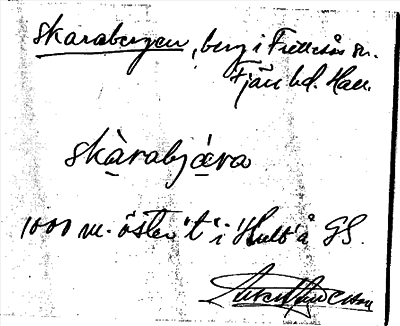 Skarabergen, berg i Frillesås sn.
Fjäre hd. Hall.
skàrabjæra
1000 m. öster 't' i 'Hult' å GS.